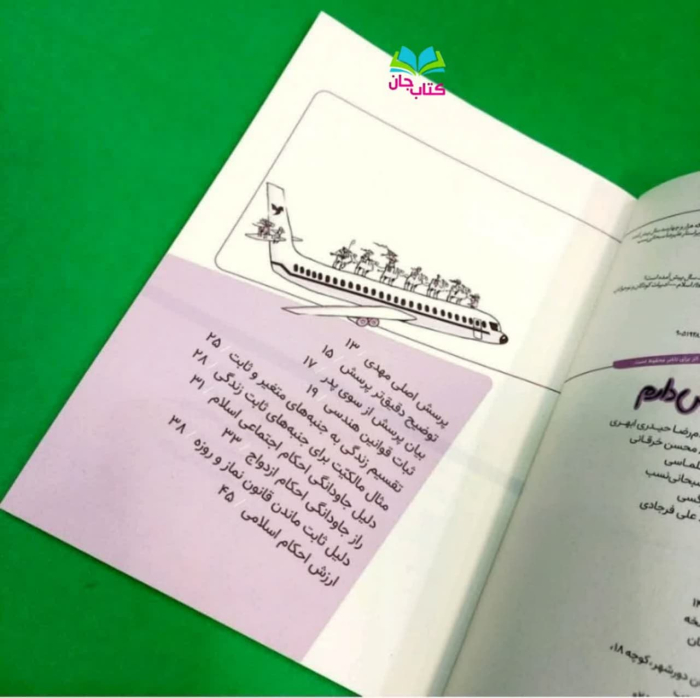 کتاب جان
پرسش اصلی مهدی / ۱۳
توضیح دقیق‌تر پرسش / ۱۵
بیان پرسش از سوی پدر / ۱۷
ثبات قوانین هندسی / ۱۹
تقسیم زندگی به جنبه‌های متغیر و ثابت / ۲۵
مثال مالکیّت برای جنبه‌های ثابت زندگی / ۲۸
دلیل جاودانگی احکام اجتماعی اسلام / ۳۱
راز جاودانگی احکام ازدواج / ۳۳
دلیل ثابت ماندن قانون نماز و روزه / ۳۸
ارزش احکام اسلامی / ۴۵
اثر برای ناشر محفوظ است
س دارم
حیدری ابهری
محسن خرقانی
لماسی
سبحانی‌نسب
کسی
علی فرجادی
دورشهر، کوچه ۱۸،